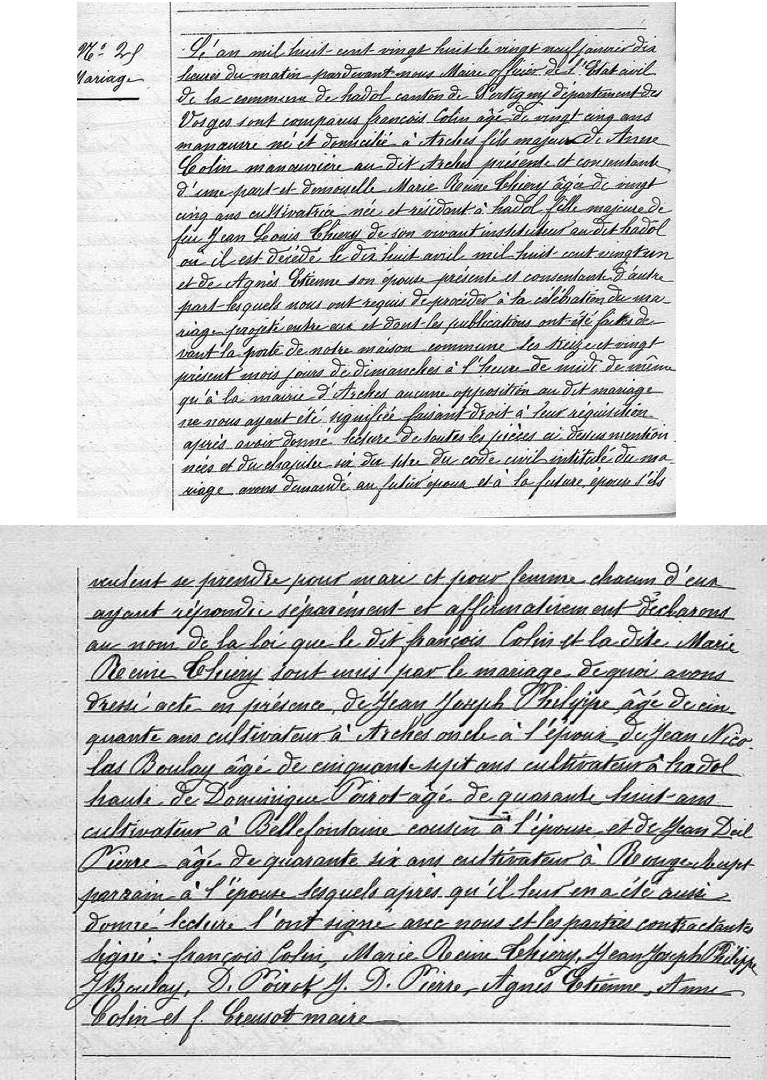 N.º 25
Mariage
L'an mil huit cent vingt huit le vingt neuf janvier dix
heures du matin pardevant nous Maire officier de l'Etat civil
de la commune de hadol canton de Xertigny département des
Vosges sont comparus françois Colin âgé de vingt cinq ans
manœuvre né et domicilié à Arches fils majeur de Anne
Colin manœuvrière au dit Arches présente et consentante
d'une part et demoiselle Marie Reine Thiéry âgée de vingt
cinq ans cultivatrice née et résidant à hadol fille majeure de
feu Jean Louis Thiery de son vivant instituteur au dit hadol
où il est décédé le dix huit avril mil huit cent vingt un
et de Agnès Etienne son épouse présente et consentante d'autre
part lesquels nous ont requis de procéder à la célébration du ma-
riage projeté entre eux et dont les publications ont été faites de-
vant la porte de notre maison commune les treize et vingt
présent mois jours de dimanches à l'heure de midi de même
qu'à la mairie d'Arches aucune opposition au dit mariage
ne nous ayant été signifiée faisant droit à leur requisition
après avoir donné lecture de toutes les pièces ci dessus mention-
nées et du chapitre six du titre du code civil intitulé du ma-
riage avons demandé au futur époux et à la future épouse s'ils
veulent se prendre pour mari et pour femme chacun d'eux
ayant répondu séparément et affirmativement déclarons
au nom de la loi que le dit françois Colin et la dite Marie
Reine Thiéry sont unis par le mariage de quoi avons
dressé acte en présence de Jean Joseph Philippe âgé de cin-
quante ans cultivateur à Arches oncle à l'époux, de Jean Nico-
las Boulay âgé de cinquante sept ans cultivateur à hadol
haute de Dominique Poirot âgé de quarante huit ans
cultivateur à Bellefontaine cousin à l'épouse et de Jean Deil
Pierre âgé de quarante six ans cultivateur à
parrain à l'épouse lesquels après qu'il leur en a été aussi
donné lecture l'ont signé avec nous et les parties contractantes
Signé : françois Colin, Marie Reine Thiéry, Jean Joseph Philippe
J Boulay, D. Poirot J. D. Pierre, Agnès Etienne, Anne
Colin et f. Creusot maire